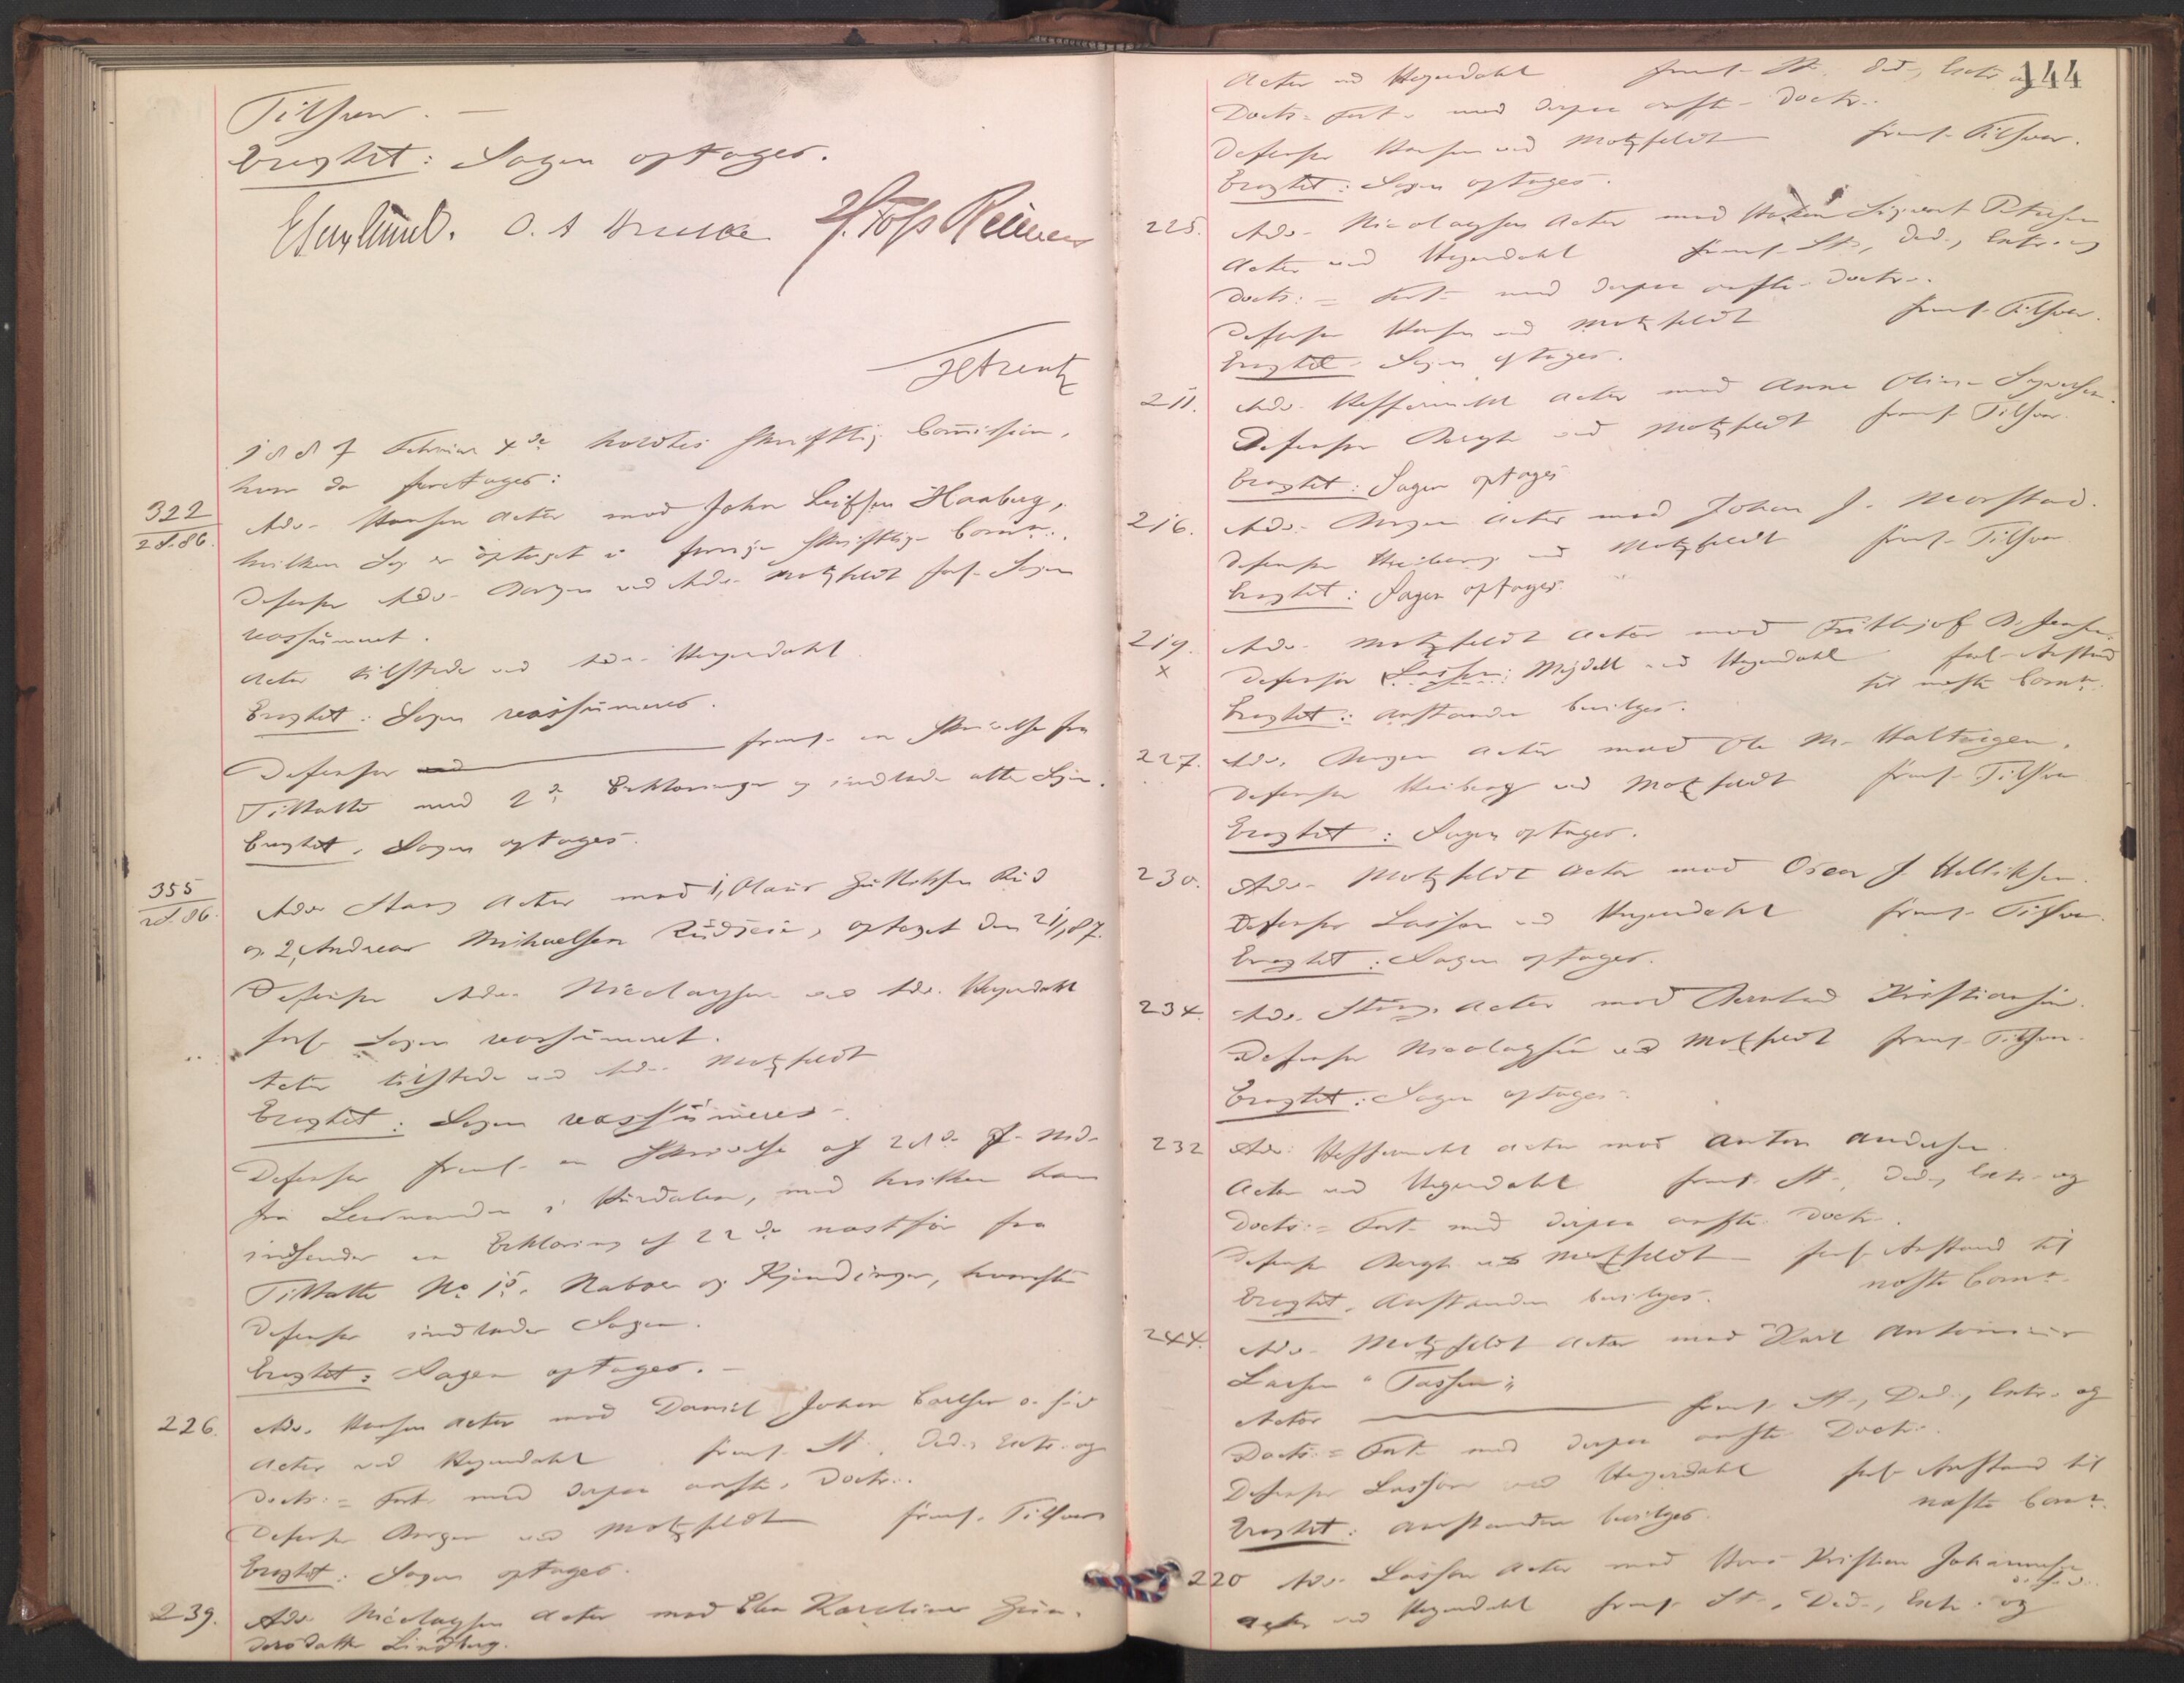 Tilsvar. –
Eragtet: Sagen optages.
1887 Februar 4de holdtes skriftlig Commission,
hvor da foretages:
322
2S.86.
Adv. Hansen Actor mod John Leifsen Haaberg,
hvilken Sag er optaget i forrige skriftlige Comm.
Defensor Adv. Bergen ved Adv. Motzfeldt forl. Sagen
reassumeret.
Actor tilstede ved Adv. Heyerdahl
Eragtet: Sagen reassumeres.
Defensor freml. en Skrivelse fra
Tiltalte med 2de Erklæringer og indlader atter Sagen.
Eragtet. Sagen optages.
355
2S.86.
Adv. Stang Actor mod 1, Olaus Rud
og 2, Andreas Michaelsen optaget den 21/1 87.
Defensor Adv. Nicolaysen ved Adv. Heyerdahl
forl. Sagen reassumeret.
Actor tilstede ved Adv. Motzfeldt
Eragtet: Sagen reassumeres.
Defensor freml. en Skrivelse af f. Md.
fra Lensmanden i med hvilken han
indsender en Erklæring af 22de næstfør fra
Tiltalte No 1s. Naboer og Kjendinger, hvorefter
Defensor indlader Sagen.
Eragtet: Sagen optages. –
226.
Adv. Hansen Actor mod Daniel Johan Carlsen
Actor ved Heyerdahl freml. St., Ded., Extr. og
Doct. = Fort. med derpaa anført Doctr.
Defensor Bergen ved Motzfeldt freml. Tilsvar
Eragtet: Sagen optages.
239.
Adv. Nicolaysen Actor mod Elen Karoline
Lindberg.
144
Actor ved Heyerdahl freml. St. Ded., Extr. og
Doctr. = Fort. med derpaa anført Doctr.
Defensor Hansen ved Motzfeldt freml. Tilsvar.
Eragtet: Sagen optages.
225.
Adv. Nicolaysen Actor mod Sigvart Petersen
Actor ved Heyerdahl freml. St., Ded., Extr. og
Doctr: = Fort. med derpaa anført Doctr.
Defensor Hansen ved Motzfeldt freml. Tilsvar.
Eragtet: Sagen optages.
211.
Adv. Actor mod Anne Oline
Defensor Bergh ved Motzfeldt freml. Tilsvar.
Eragtet: Sagen optages
216.
Adv. Bergen Actor mod Johan J. Morstad.
Defensor Heiberg ved Motzfeldt freml. Tilsvar
Eragtet: Sagen optages.
219.
x
Adv. Motzfeldt Actor mod Frithjof B. Jensen.
Defensor Lasson: Mejdell ved Heyerdahl forl. Anstand
til næste Comm.
Eragtet: Anstanden bevilges.
227.
Adv. Bergen Actor mod Ole M.
Defensor Heiberg ved Motzfeldt freml. Tilsvar
Eragtet: Sagen optages.
230.
Adv. Motzfeldt Actor mod Oscar J. Helliksen.
Defensor Lasson ved Heyerdahl freml. Tilsvar.
Eragtet: Sagen optages.
234.
Adv. Stang Actor mod Kristiansen.
Defensor Nicolaysen ved Motzfeldt freml. Tilsvar.
Eragtet: Sagen optages.
232
Adv. Actor mod Anton Andersen
Actor ved Heyerdahl freml. St., Ded., Extr. og
Doctr: = Fort. med derpaa anført Doctr.
Defensor Bergh ved Motzfeldt forl. Anstand til
næste Comm.
Eragtet. Anstanden bevilges.
244.
Adv. Motzfeldt Actor mod Karl Antonius
Larsen "Tassen"
Actor freml. St., Ded., Extr. og
Doctr: = Fort. med derpaa anført Doctr.
Defensor Lasson ved Heyerdahl forl. Anstand til
næste Comm.
Eragtet: Anstanden bevilges.
220
Adv. Lasson Actor mod Hans Kristian Johannesen
Actor ved Heyerdahl freml. St., Ded., Extr. og